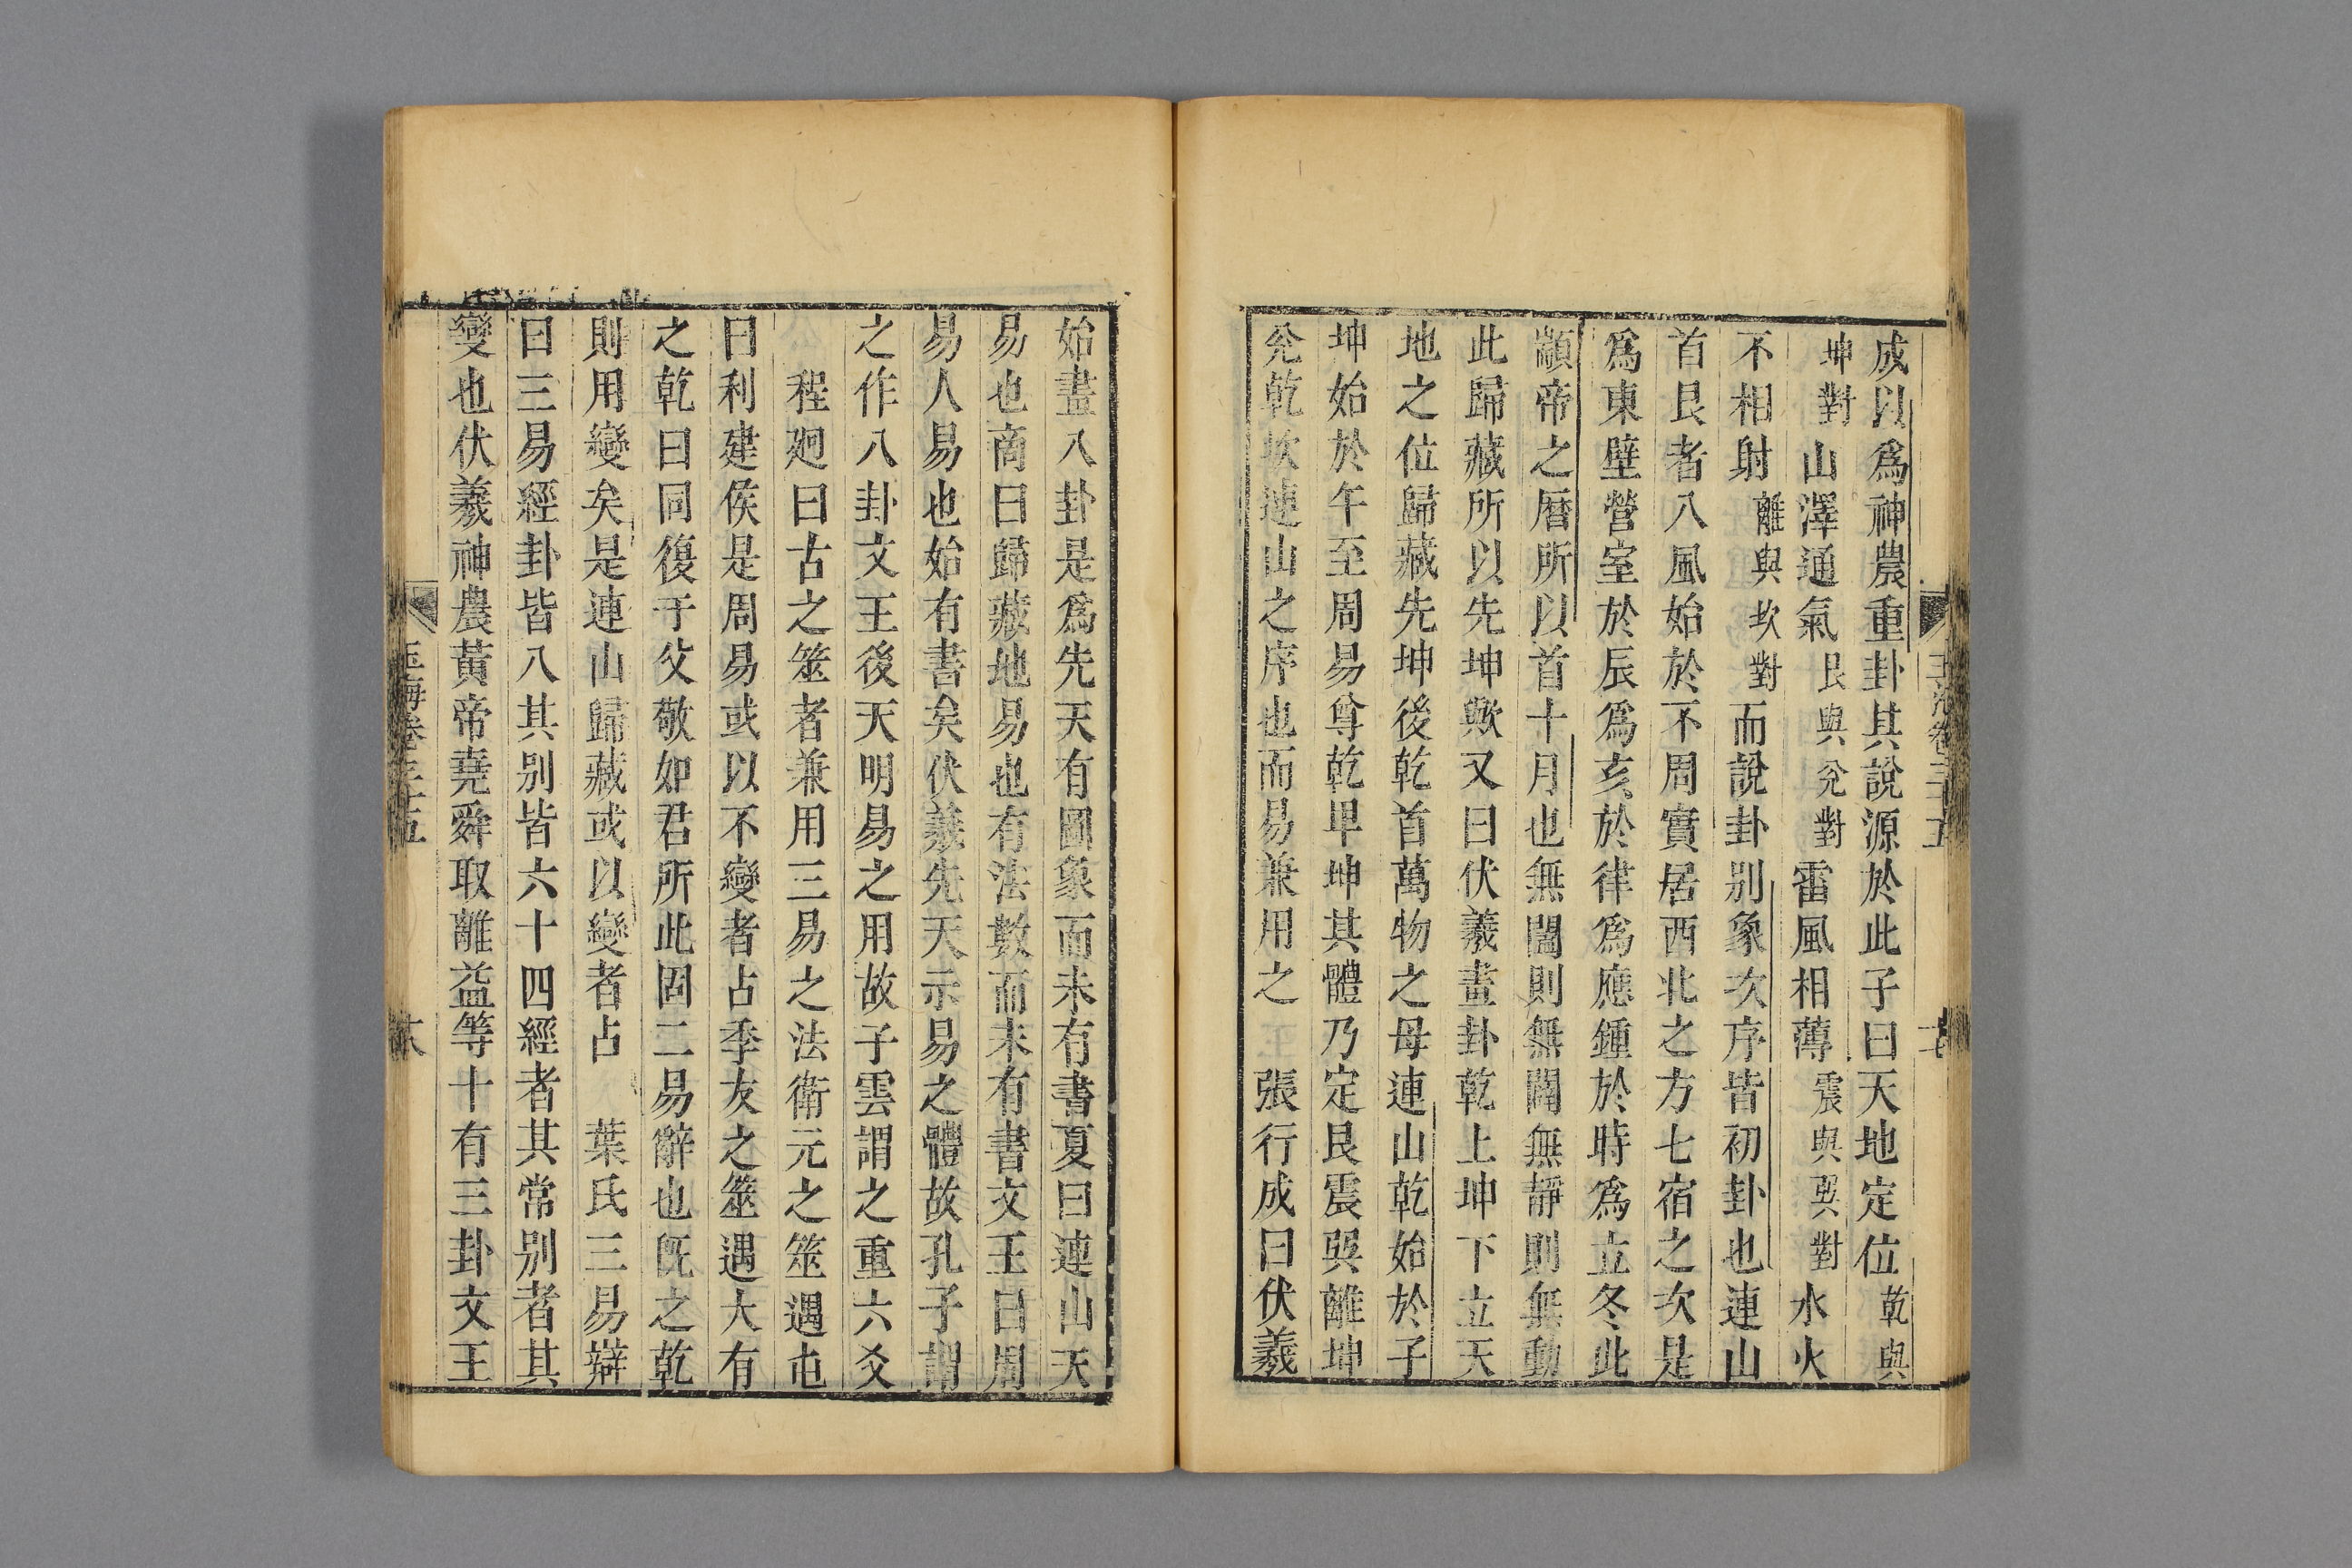 玉海卷三十五
成以爲神農重卦其說源於此子曰天地定位乾與
坤對山澤通氣艮與兊對雷風相薄震與巽對水火
不相射離與坎對而說卦别象次序皆初卦也連山
首艮者八風始於不周實居西北之方七宿之次是
爲東壁營室於辰爲亥於律爲應鍾於時爲立冬此
顓帝之曆所以首十月也無闔則無闢無靜則無動
此歸藏所以先坤歟又曰伏羲畫卦乾上坤下立天
地之位歸藏先坤後乾首萬物之母連山乾始於子
坤始於午至周易尊乾卑坤其體乃定艮震巽離坤
兊乾坎連山之序也而易兼用之 張行成曰伏羲
始畫八卦是爲先天有圖象而未有書夏曰連山天
易也商曰歸藏地易也有法數而未有書文王曰周
易人易也始有書矣伏羲先天示易之體故孔子謂
之作八卦文王後天明易之用故子雲謂之重六爻
程迥曰古之筮者兼用三易之法衛元之筮遇屯
曰利建侯是周易或以不變者占季友之筮遇大有
之乾曰同復于父敬如君所此固二易辭也旣之乾
則用變矣是連山歸藏或以變者占 葉氏三易辯
曰三易經卦皆八其别皆六十四經者其常别者其
變也伏羲神農黃帝堯舜取離益等十有三卦文王
玉海卷三十五